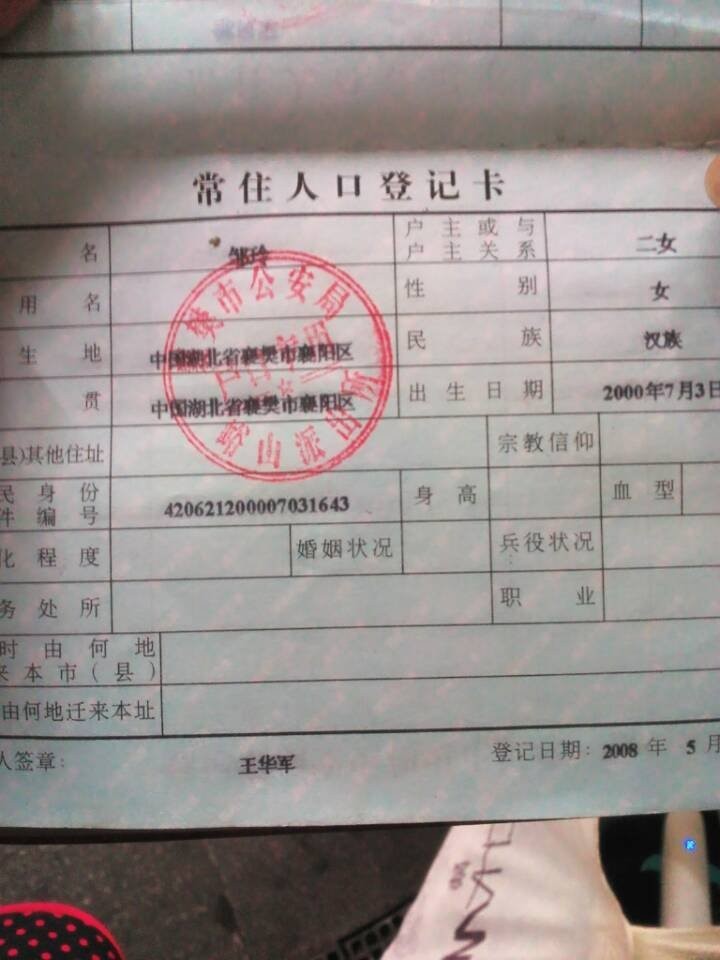 常住人口登记卡
名 邹玲 户主或与户主关系 二女
用名 性别 女
生地 中国湖北省襄樊市襄阳区 民族 汉族
贯 中国湖北省襄樊市襄阳区 出生日期 2000年7月3日
县)其他住址 宗教信仰
民身份 件编号 420621200007031643 身高 血型
化程度 婚姻状况 兵役状况
务处所 职业
时由何地 来本市(县)
由何地迁来本址
人签章: 王华军 登记日期: 2008年5月
市公安局
山派出所